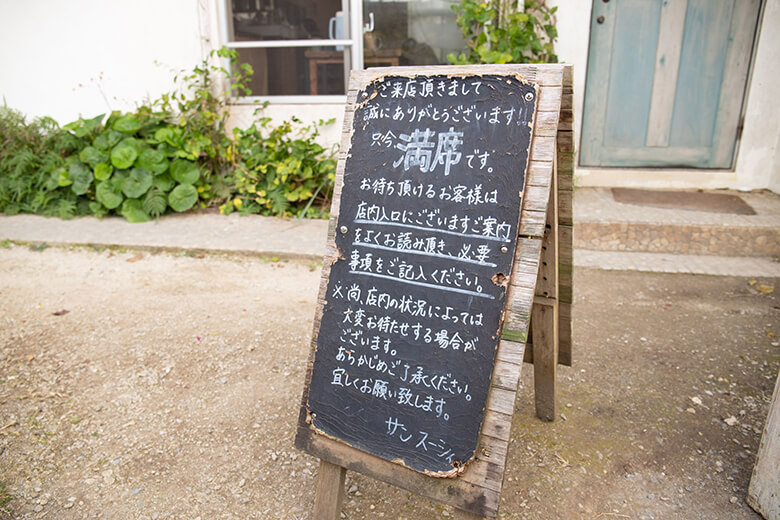 ご来店頂きまして
誠にありがとうございます!!
只今、満席です。
お待ち頂けるお客様は
店内入口にございますご案内
をよくお読み頂き、必要
事項をご記入ください。
※尚、店内の状況によっては
大変お待たせする場合が
ございます。
あらかじめご了承ください。
宜しくお願い致します。
サンスーシィ